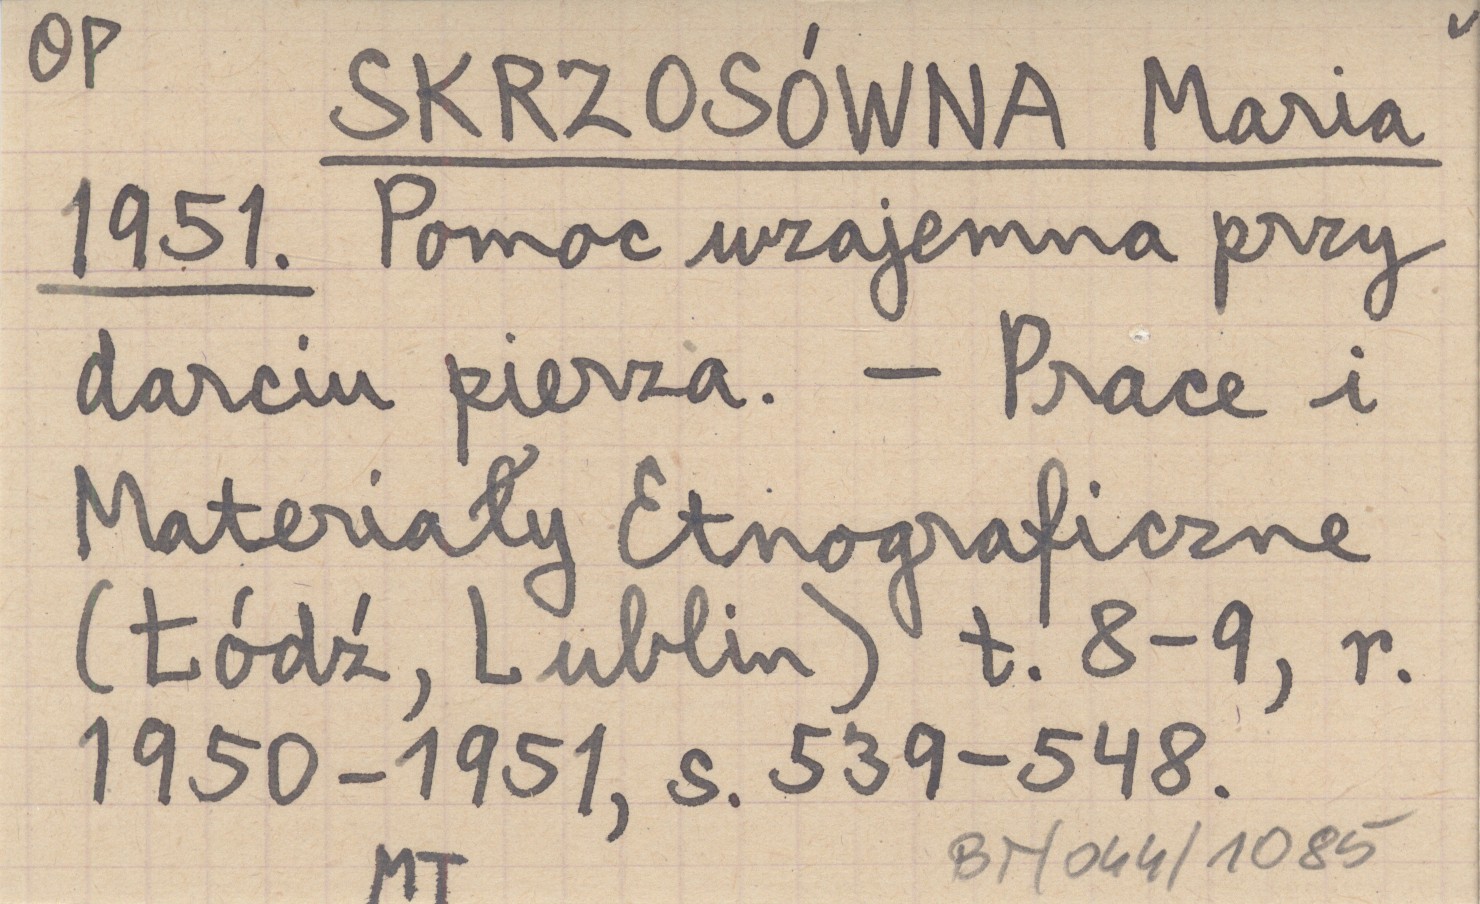 OP
SKRZOSÓWNA Maria
1951. Pomoc wzajemna przy
darciu pierza. – Prace i
Materiały Etnograficzne
(Łódź, Lublin) t. 8–9, r.
1950–1951, s. 539–548.
MT
BM/044/1085